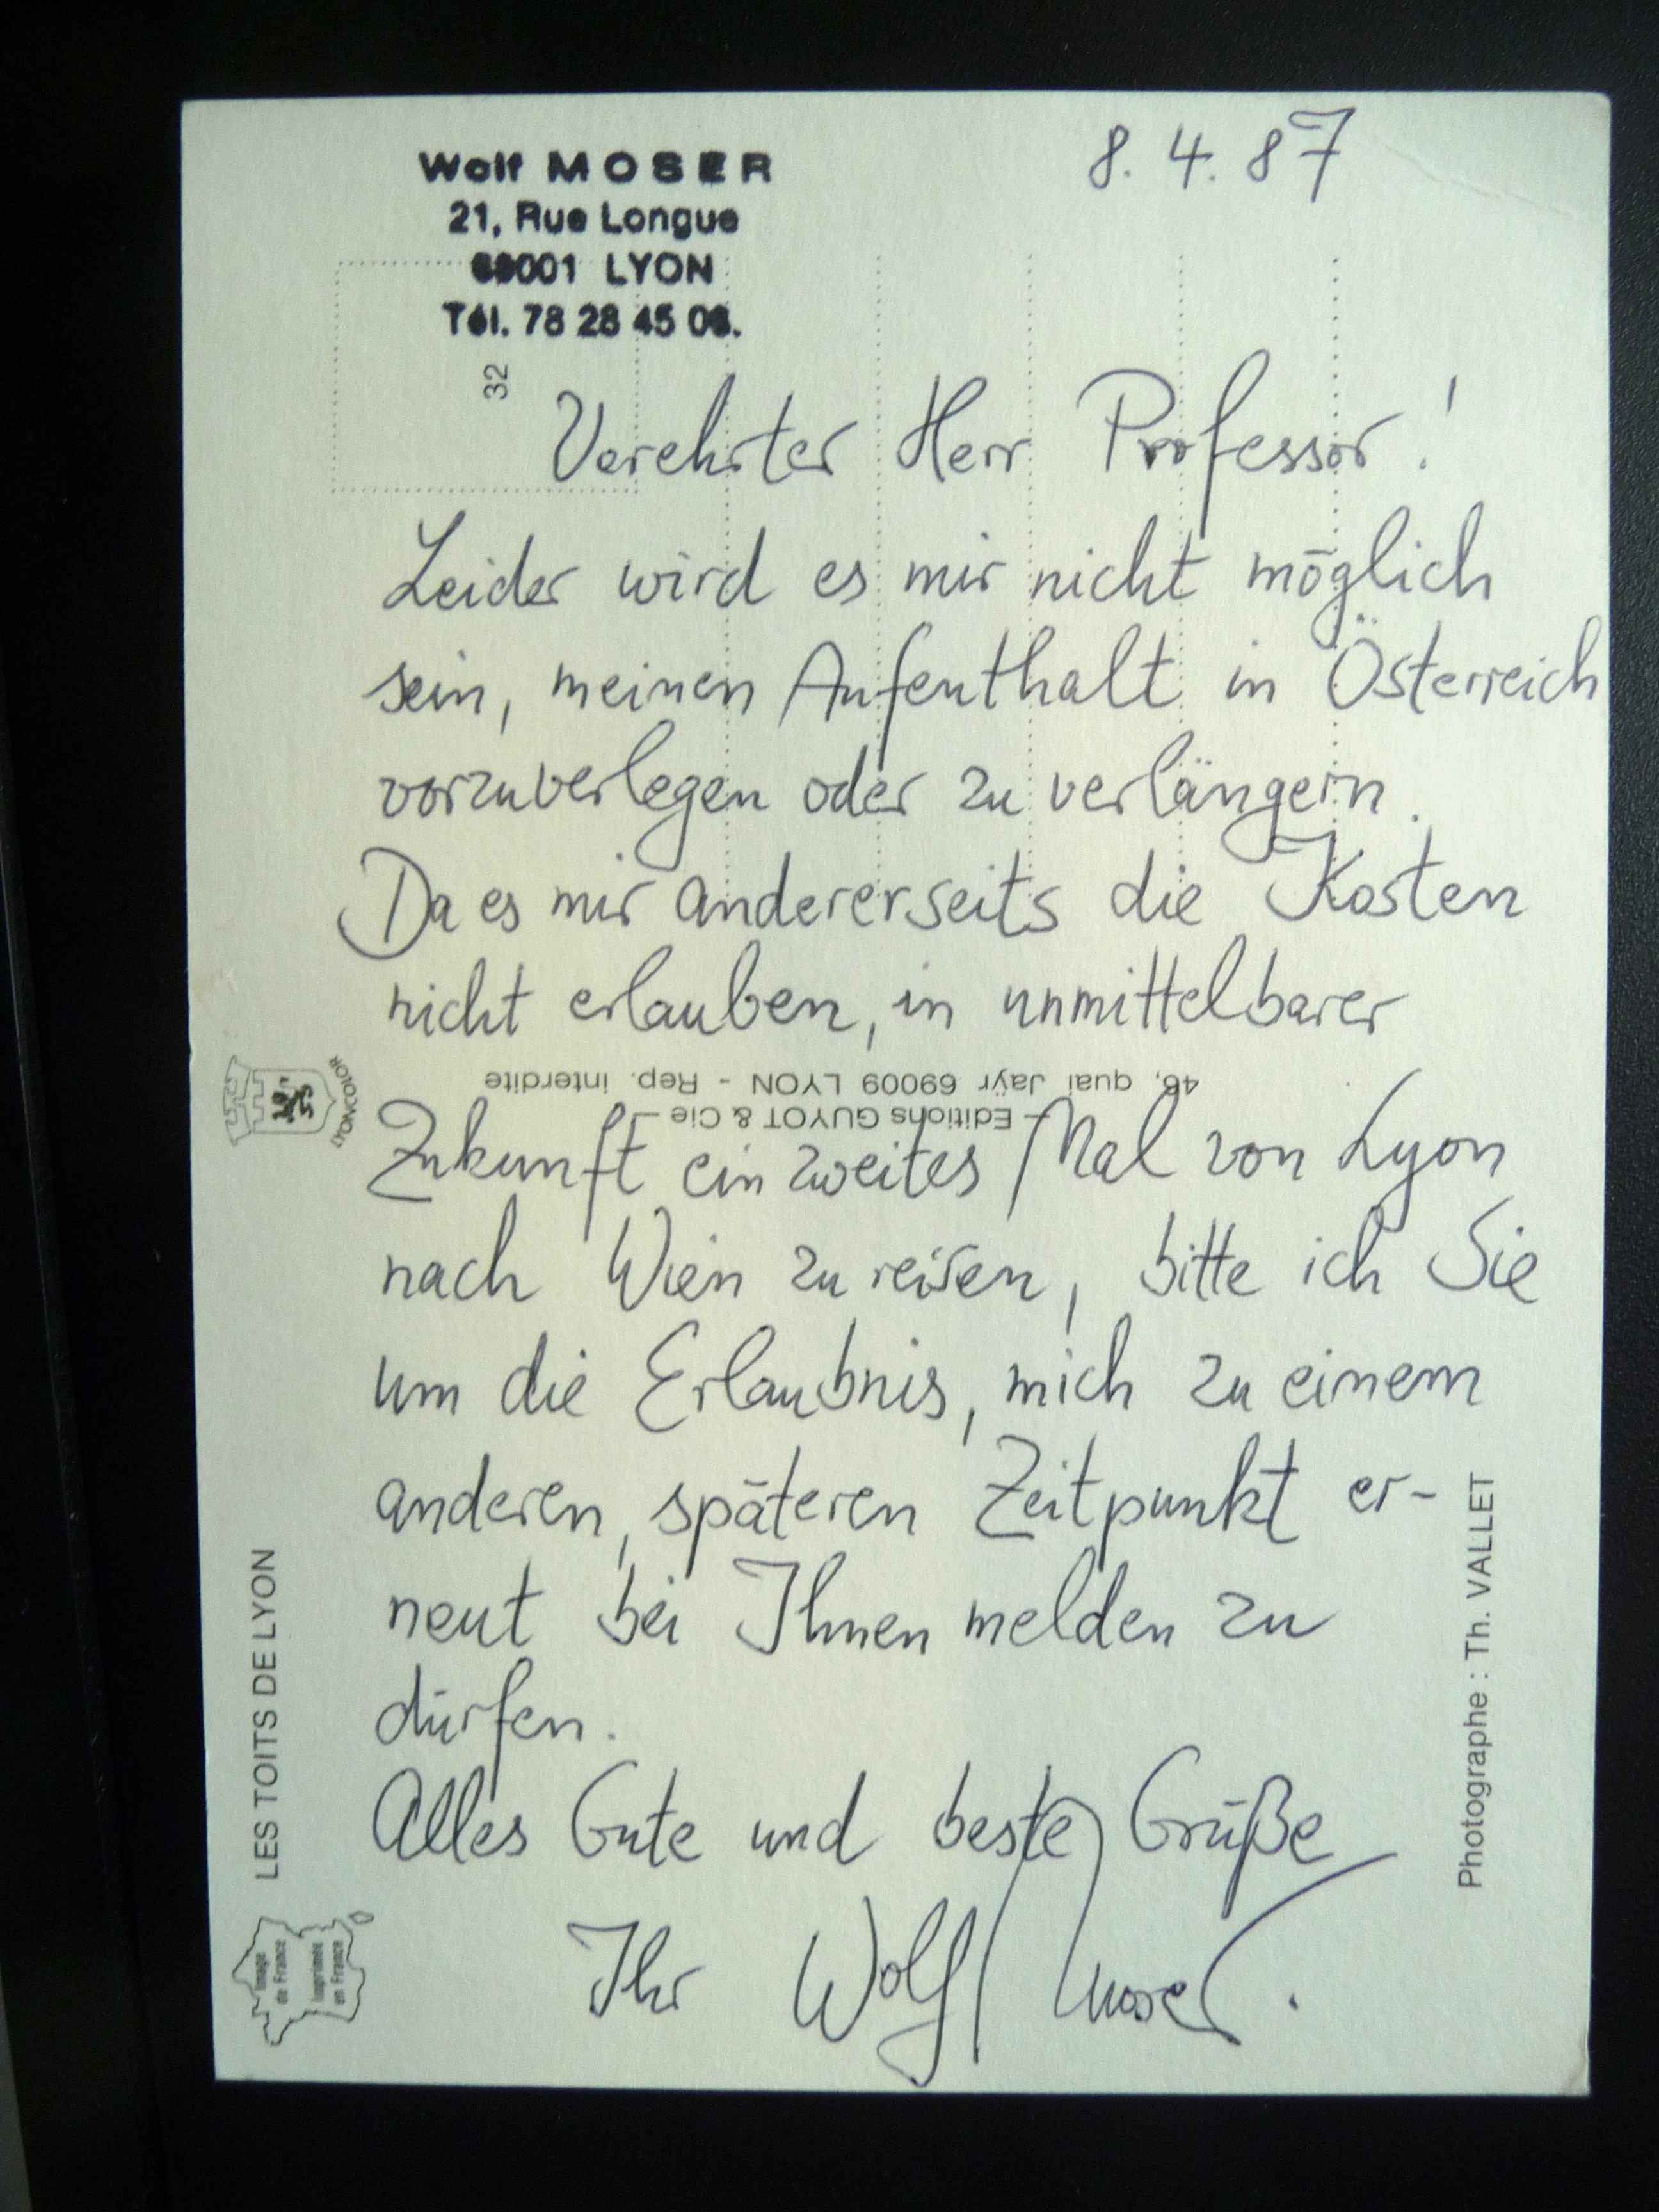 Wolf MOSER
21, Rue Longue
69001 LYON
Tél. 78 28 45 06.
8. 4. 87
32
Verehrter Herr Professor!
Leider wird es mir nicht möglich
sein, meinen Aufenthalt in Österreich
vorzuverlegen oder zu verlängern.
Da es mir andererseits die Kosten
nicht erlauben, in unmittelbarer
Zukunft ein zweites Mal von Lyon
nach Wien zu reisen, bitte ich Sie
um die Erlaubnis, mich zu einem
anderen, späteren Zeitpunkt er-
neut bei Ihnen melden zu
dürfen.
Alles Gute und beste Grüße
Ihr Wolf Moser.
— Editions GUYOT & Cie —
46, quai Jaÿr 69009 LYON - Rep. interdite
LYONCOLOR
LES TOITS DE LYON
Image
de France
Imprimée
en France
Photographe : Th. VALLET